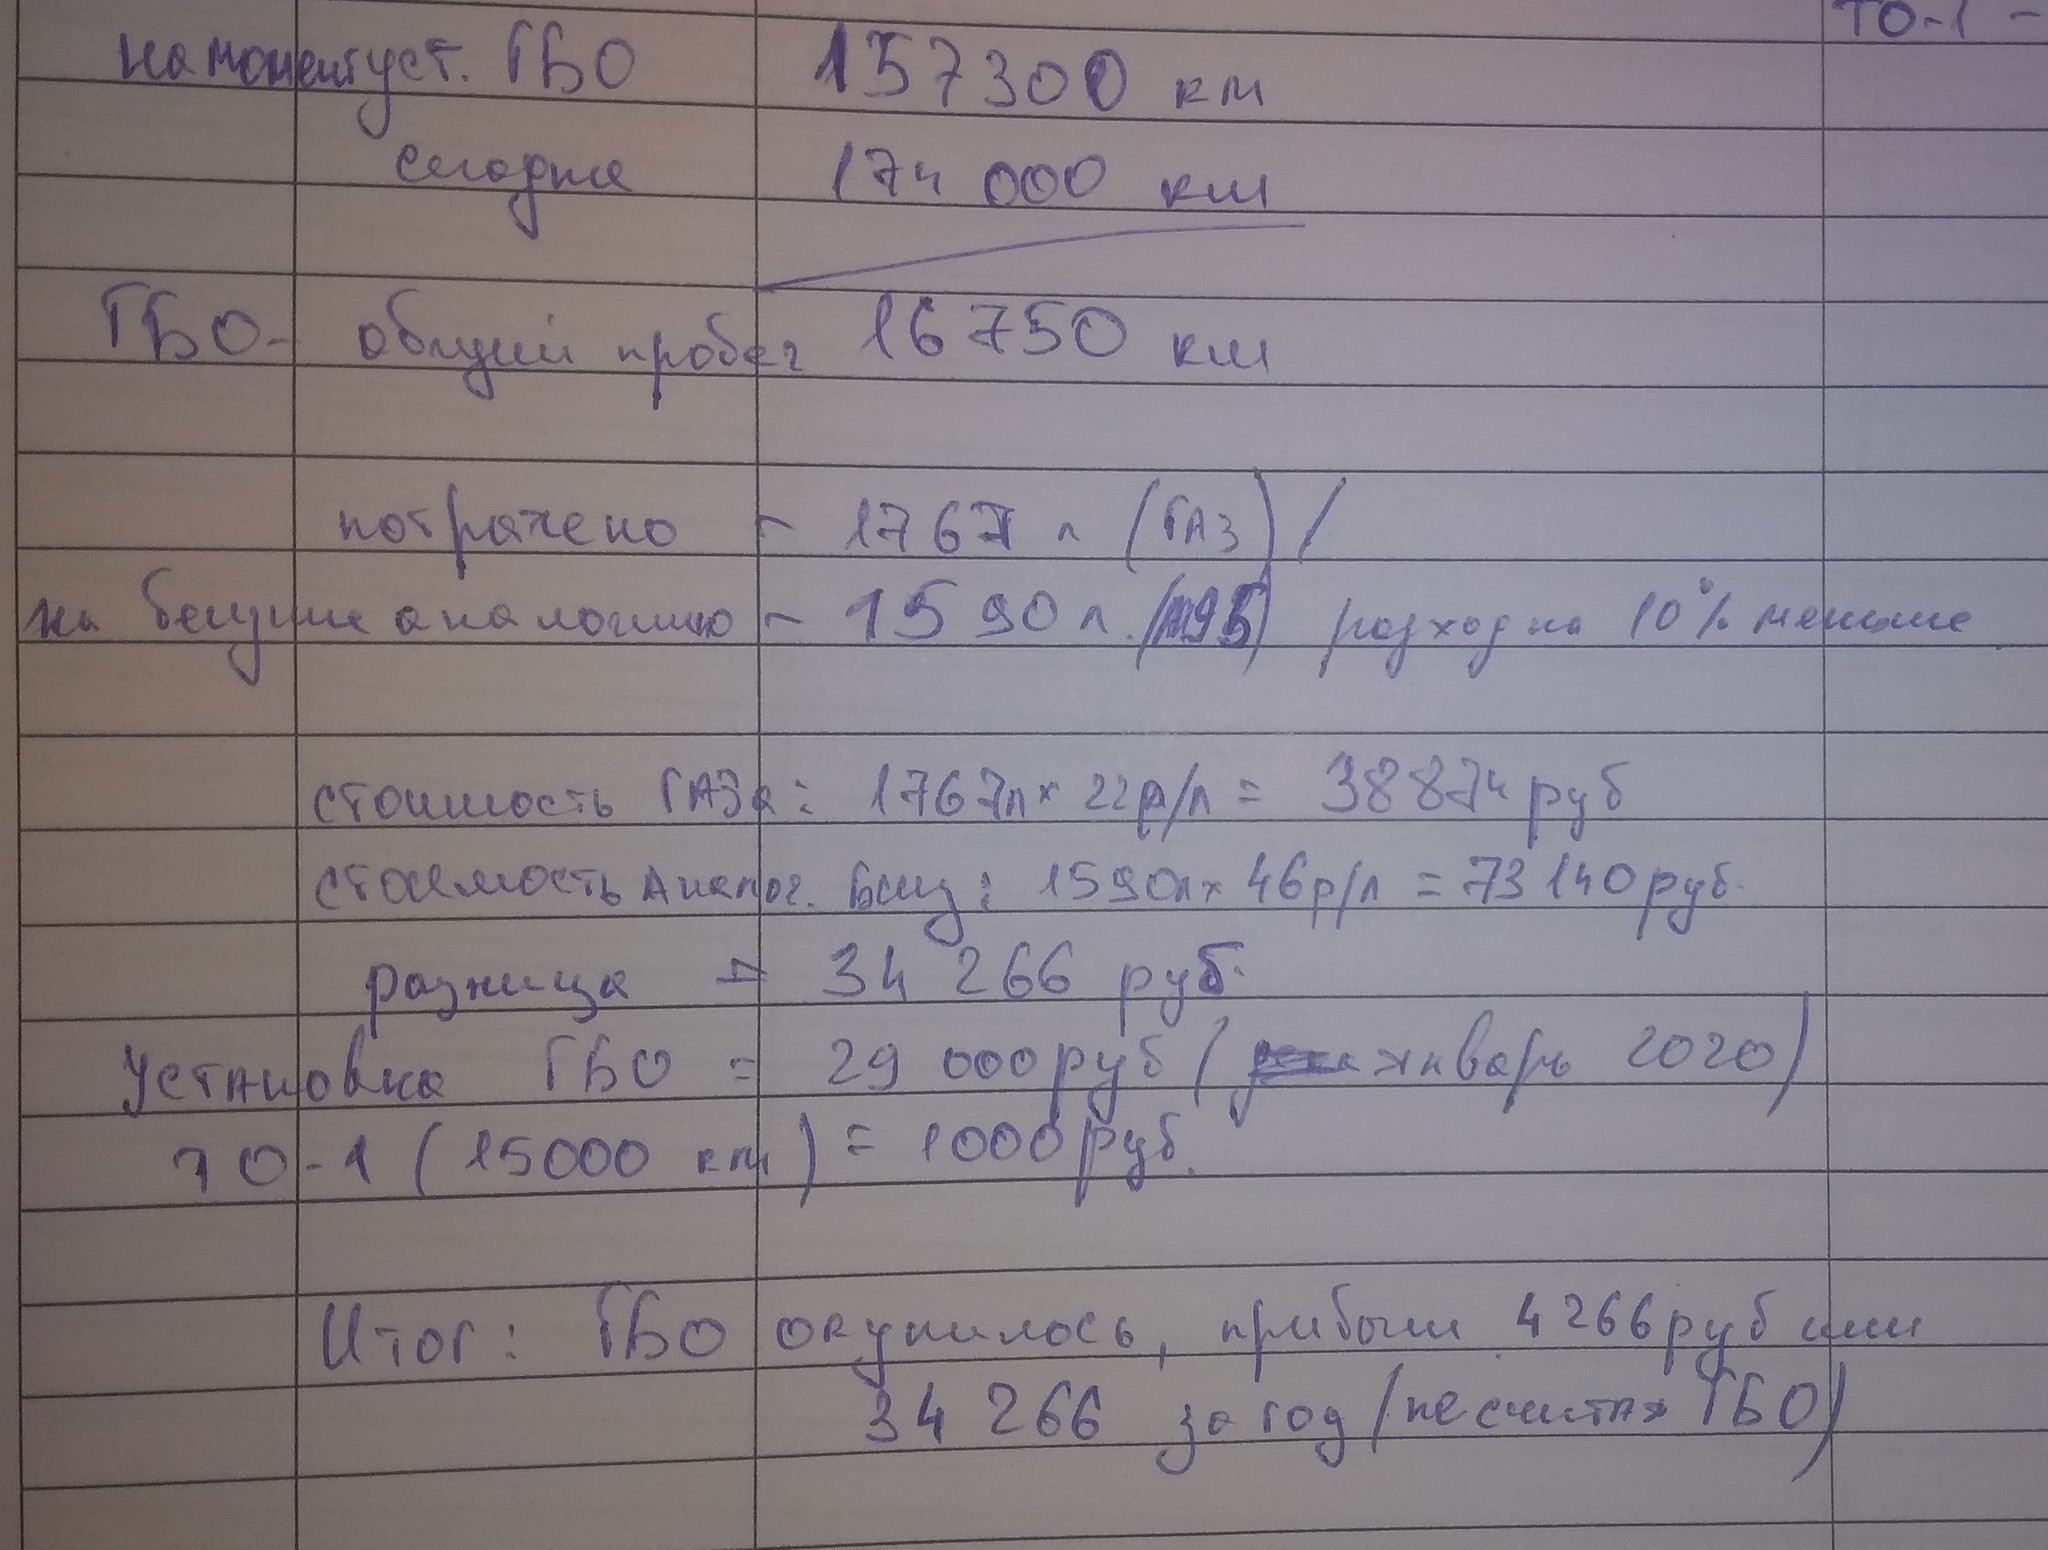 ТО-1 -
на момент уст. ГБО 157300 км
сегодня 174 000 км
ГБО - общий пробег 16750 км
потрачено - 1767 л (ГАЗ) /
на бензине аналогично - 1590 л. (аи95) расход на 10% меньше
стоимость ГАЗа: 1767л x 22р/л = 38874 руб
стоимость Аналог. Бенз: 1590л x 46р/л = 73 140 руб.
разница = 34 266 руб.
Установка ГБО = 29 000 руб ( январь 2020)
ТО-1 (15000 км) = 1000 руб.
Итог: ГБО окупилось, прибыли 4 266 руб или
34 266 за год (не считая ГБО)